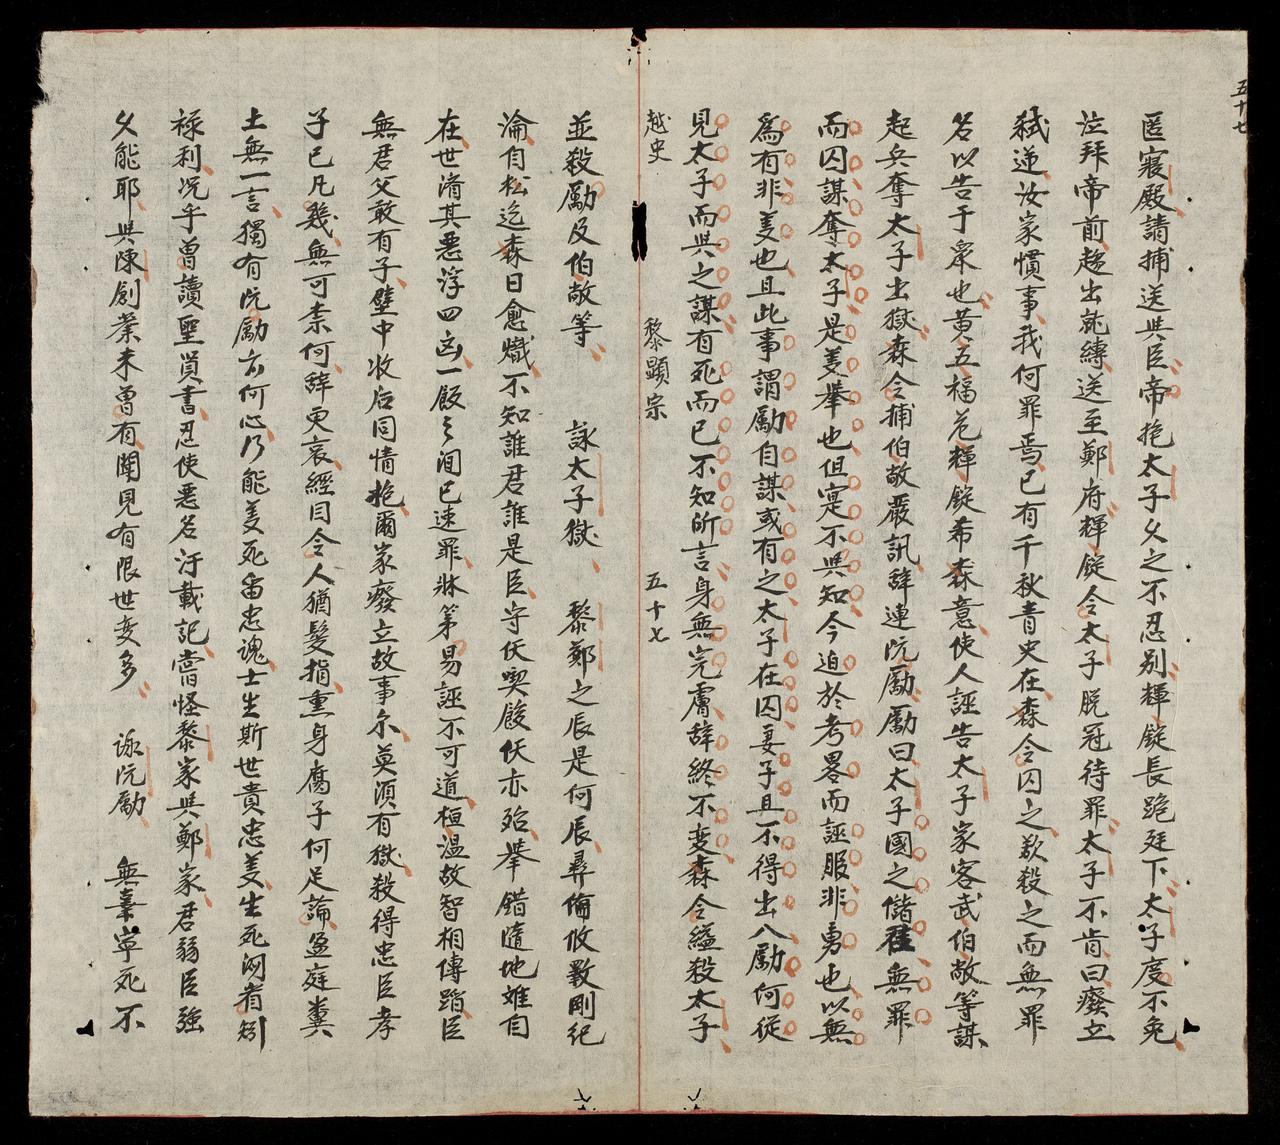 五十七
匿寢殿請捕送與臣帝抱太子久之不忍別輝錠長跪廷下太子度不免
泣拜帝前趍出就縛送至鄭府輝錠令太子脫冠待罪太子不肯曰癈立
弑逆汝家慣事我何罪焉已有千秋青史在森令囚之欲殺之而無罪
名以告于衆也黄五福范輝錠希森意使人誣告太子家客武伯敞等謀
起兵奪太子出獄森令捕伯敞嚴訊辞連阮勵勵曰太子國之儲君無罪
而囚謀奪太子是美舉也但寔不與知今迫於考畧而誣服非勇也以無
爲有非美也且此事謂勵自謀或有之太子在囚妻子且不得出入勵何從
見太子而與之謀有死而已不知所言身無完膚辞終不变森令縊殺太子
越史 黎顯宗 五十七
並殺勵及伯敞等 詠太子獄 黎鄭之辰是何辰彛倫攸斁剛紀
淪自松迄森日愈熾不知誰君誰是臣守仸喫餕仸亦殆舉錯隨地难自
在世済其悪浮四凶一飯之间已速罪牀第易誣不可道桓温故智相傳蹈臣
無君父敢有子壁中收后同情抱爾家癈立故事尔莫須有獄殺得忠臣孝
子已凡幾無可柰何辞更哀經目令人猶髮指熏身腐子何足論盈庭糞
土無一言獨有阮勵亦何心乃能美死畱忠魂士生斯世貴忠美生死网省矧
禄利况乎曽讀聖賢書忍使悪名汙載記嘗怪黎家與鄭家君弱臣強
久能耶與陳創業未曽有闻見有限世变多 詠阮勵 無辜寧死不